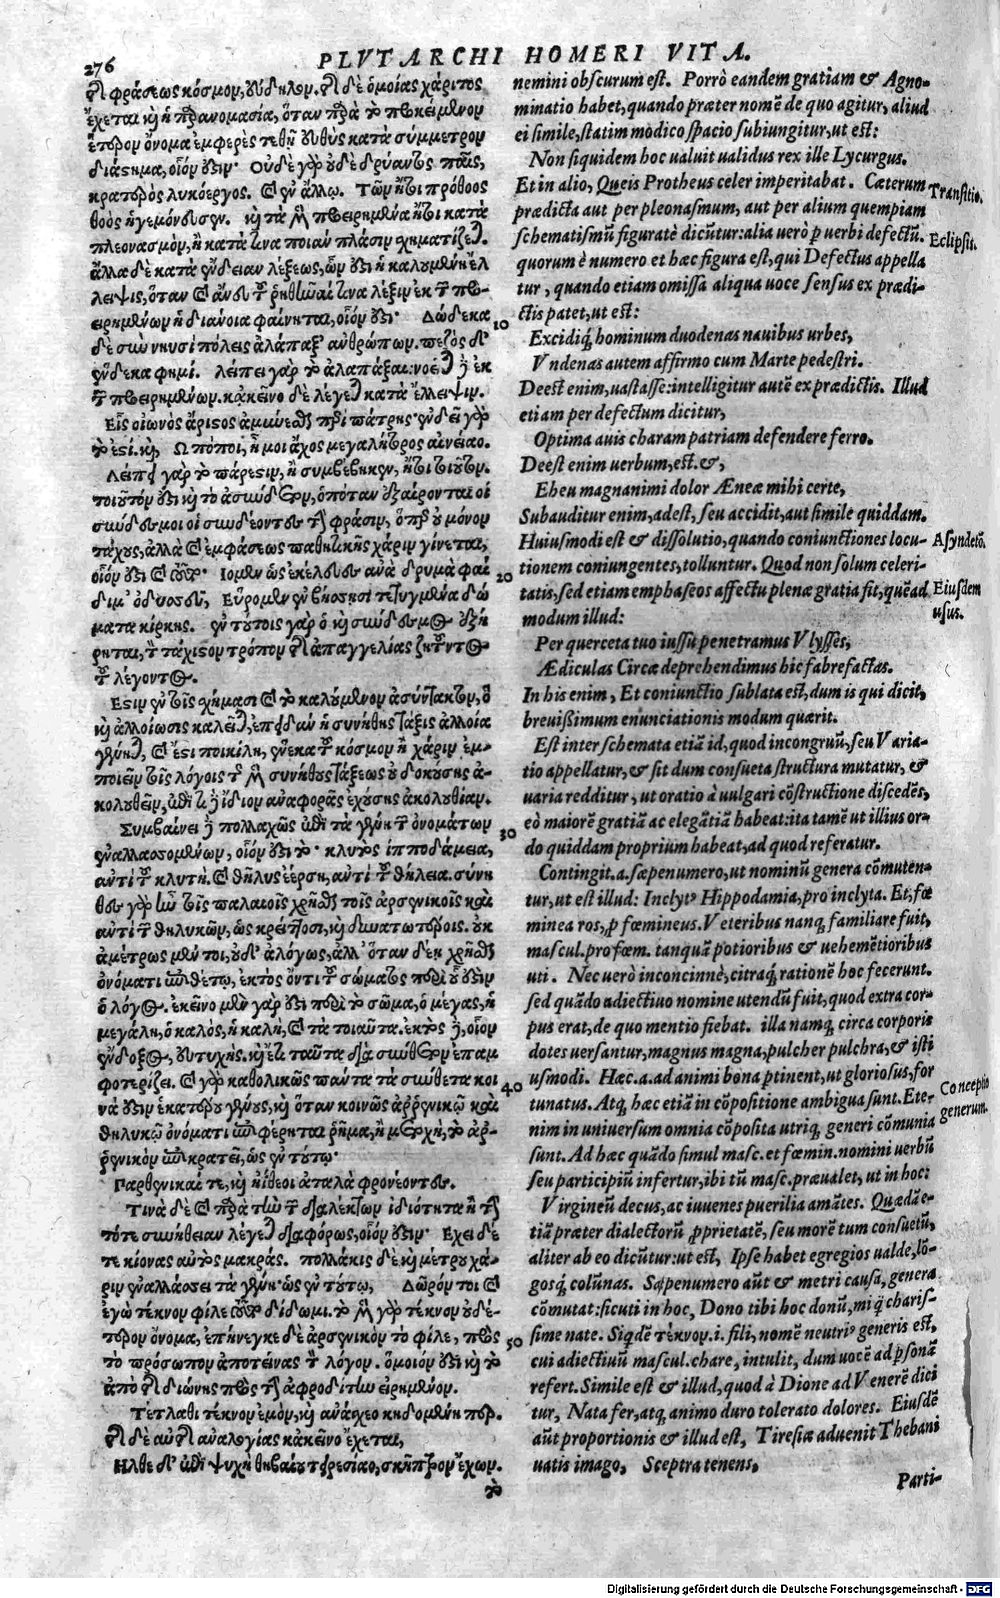 276 PLVTARCHI HOMERI VITA.
φράσεως κόσμον, οὐ δῆλον. δὲ ὁμοίας χάριτος
ἔχεται καὶ ἡ παρονομασία, ὅταν παρὰ τὸ προκείμενον
ἕτερον ὄνομα ἐμφερὲς τεθῇ εὐθὺς κατὰ σύμμετρον
διάστημα, οἷόν ἐστιν· Οὐδὲ γὰρ οὐδὲ δρύαντος παῖς,
κρατερὸς λυκόεργος. καὶ ἐν ἄλλῳ. Τῶν πρόθοος
θοὸς ἡγεμόνευεν. καὶ τὰ μὲν προειρημένα κατὰ
πλεονασμὸν, ἢ κατὰ τινα ποιὰν πλάσιν σχηματίζεται.
ἄλλα δὲ κατὰ ἔνδειαν λέξεως, ὧν ἐστι ἡ καλουμένη ἔλ
λειψις, ὅταν καὶ ἄνευ τοῦ ῥηθῆναί τινα λέξιν ἐκ τῶν προ-
ειρημένων ἡ διάνοια φαίνηται, οἷόν ἐστι· Δώδεκα 10
δὲ σὺν νηυσὶ πόλεις ἀλάπαξ' ἀνθρώπων. πεζὸς δ'
ἕνδεκα φημί. λείπει γὰρ τὸ ἀλαπάξαι· νοεῖται δὲ ἐκ
τῶν προειρημένων. κἀκεῖνο δὲ λέγεται κατὰ ἔλλειψιν.
Εἷς οἰωνὸς ἄριστος ἀμύνεσθαι περὶ πάτρης· ἐνδεῖ γὰρ
τὸ ἐστί. καὶ, Ω πόποι, ἦ μοι ἄχος μεγαλήτορος αἰνείαο.
Λείπει γὰρ τὸ πάρεστιν, ἢ συμβέβηκεν, ἤ τι τοιοῦτον.
τοιοῦτόν ἐστι καὶ τὸ ἀσύνδετον, ὁπόταν ἐξαίρονται οἱ
σύνδεσμοι οἱ συνδέοντες τὴν φράσιν, ὅπερ οὐ μόνον
τάχους, ἀλλὰ καὶ ἐμφάσεως παθητικῆς χάριν γίνεται,
οἷόν ἐστι καὶ τοῦτο· Ιομεν ὡς ἐκέλευες ἀνὰ δρυμὰ φαί 20
διμ' ὀδυσσεῦ, Εὕρομεν ἐν βήσσῃσι τετυγμένα δώ
ματα κίρκης. ἐν τούτοις γὰρ ὁ καὶ σύνδεσμος ἐξῄ
ρηται, τάχιστον τρόπον ἀπαγγελίας ζητοῦντος
τοῦ λέγοντος.
Εστιν ἐν τοῖς σχήμασι καὶ τὸ καλούμενον ἀσύντακτον, ὃ
καὶ ἀλλοίωσις καλεῖται, ἐπειδὰν ἡ συνήθης τάξις ἀλλοία
γένηται, καὶ ἔστι ποικίλη, ἕνεκα τοῦ κόσμον ἢ χάριν ἐμ-
ποιεῖν τοῖς λόγοις τῆς μὲν συνήθους τάξεως οὐ δοκούσης ἀ-
κολουθεῖν, ἐπὶ τι δὲ ἴδιον ἀναφορᾶς ἐχούσης ἀκολουθίαν.
Συμβαίνει δὲ πολλαχῶς ἐπὶ τὰ γένη τῶν ὀνομάτων 30
ἐναλλασσομένων, οἷόν ἐστι τὸ· κλυτὸς ἱπποδάμεια,
ἀντὶ τοῦ κλυτή. καὶ θῆλυς ἐέρση, ἀντὶ τοῦ θήλεια. σύνη
θες γὰρ ἦν τοῖς παλαιοῖς χρῆσθαι τοῖς ἀρσενικοῖς καὶ
ἀντὶ τῶν θηλυκῶν, ὡς κρείττοσι, καὶ δυνατωτέροις. οὐκ
ἀμέτρως μέντοι, οὐδ' ἀλόγως, ἀλλ' ὅταν δέῃ χρῆσθαι
ὀνόματι ἐπιθέτῳ, ἐκτὸς ὄντι τοῦ σώματος περὶ οὗ ἐστιν
ὁ λόγος. ἐκεῖνο μὲν γάρ ἐστι περὶ τὸ σῶμα, ὁ μέγας, ἡ
μεγάλη, ὁ καλὸς, ἡ καλὴ, καὶ τὰ τοιαῦτα. ἐκτὸς δὲ, οἷον
ἔνδοξος, εὐτυχής. καὶ ἔτι ταῦτα διὰ σύνθετον ἐπαμ
φοτερίζει. καὶ γὰρ καθολικῶς πάντα τὰ σύνθετα κοι 40
νά ἐστιν ἑκατέρου γένους, καὶ ὅταν κοινῶς ἀρσενικῷ καὶ
θηλυκῷ ὀνόματι ἐπιφέρηται ῥῆμα, ἢ μετοχὴ, τὸ ἀρ-
σενικὸν ἐπικρατεῖ, ὡς ἐν τούτῳ·
Παρθενικαί τε, καὶ ἠίθεοι ἀταλὰ φρονέοντες.
Τινὰ δὲ καὶ παρὰ τὴν τῶν διαλέκτων ἰδιότητα ἢ τὴν
τότε συνήθειαν λέγεται διαφόρως, οἷόν ἐστιν· Εχει δέ
τε κίονας αὐτὸς μακράς. πολλάκις δὲ καὶ μέτρου χά-
ριν ἐναλλάσσει τὰ γένη· ὡς ἐν τούτῳ, Δῶρόν τοι καὶ
ἐγὼ τέκνον φίλε τοῦτο δίδωμι. τὸ μὲν γὰρ τέκνον οὐδέ-
τερον ὄνομα, ἐπήνεγκε δὲ ἀρσενικὸν τὸ φίλε, πρὸς 50
τὸ πρόσωπον ἀποτείνας τὸν λόγον. ὅμοιόν ἐστι καὶ τὸ
ἀπὸ διώνης πρὸς τὴν ἀφροδίτην εἰρημένον.
Τέτλαθι τέκνον ἐμὸν, καὶ ἀνάσχεο κηδομένη περ.
δὲ αὐ ἀναλογίας κἀκεῖνο ἔχεται,
Ηλθε δ' ἐπὶ ψυχὴ θηβαίου τειρεσίαο, σκῆπτρον ἔχων.
τὸ
nemini obscurum est. Porrò eandem gratiam & Agno-
minatio habet, quando præter nomē de quo agitur, aliud
ei simile, statim modico spacio subiungitur, ut est:
Non siquidem hoc ualuit ualidus rex ille Lycurgus.
Et in alio, Queis Protheus celer imperitabat. Cæterum Transitio.
prædicta aut per pleonasmum, aut per alium quempiam
schematismū figuratè dicūtur: alia uerò p uerbi defectū. Eclipsis.
quorum è numero et hæc figura est, qui Defectus appella
tur, quando etiam omissa aliqua uoce sensus ex prædi-
ctis patet, ut est:
Excidiq; hominum duodenas nauibus urbes,
Vndenas autem affirmo cum Marte pedestri.
Deest enim, uastasse: intelligitur autē ex prædictis. Illud
etiam per defectum dicitur,
Optima auis charam patriam defendere ferro.
Deest enim uerbum, est. &,
Eheu magnanimi dolor Æneæ mihi certe,
Subauditur enim, adest, seu accidit, aut simile quiddam.
Huiusmodi est & dissolutio, quando coniunctiones locu- Asyndetō.
tionem coniungentes, tolluntur. Quod non solum celeri-
tatis, sed etiam emphaseos affectu plenæ gratia fit, quēad Eiusdem
modum illud: usus.
Per querceta tuo iussu penetramus Vlysses,
Ædiculas Circæ deprehendimus hic fabrefactas.
In his enim, Et coniunctio sublata est, dum is qui dicit,
breuißimum enunciationis modum quærit.
Est inter schemata etiā id, quod incongruū, seu Varia-
tio appellatur, & fit dum consueta structura mutatur, &
uaria redditur, ut oratio à uulgari cōstructione discedēs,
eò maiorē gratiā ac elegātiā habeat: ita tamē ut illius or-
do quiddam proprium habeat, ad quod referatur.
Contingit .a. sæpenumero, ut nominū genera cōmuten-
tur, ut est illud: Inclyt⁹ Hippodamia, pro inclyta. Et, fœ
minea ros, p fœmineus. Veteribus nanq; familiare fuit,
mascul. pro fœm. tanquā potioribus & uehemētioribus
uti. Nec uerò inconcinnè, citraq; rationē hoc fecerunt.
sed quādo adiectiuo nomine utendū fuit, quod extra cor-
pus erat, de quo mentio fiebat. illa namq; circa corporis
dotes uersantur, magnus magna, pulcher pulchra, & isti
usmodi. Hæc .a. ad animi bona ptinent, ut gloriosus, for
tunatus. Atq; hæc etiā in cōpositione ambigua sunt. Ete- Conceptio
nim in uniuersum omnia cōposita utriq; generi cōmunia generum.
sunt. Ad hæc quādo simul masc. et fœmin. nomini uerbū
seu participiū infertur, ibi tū masc. præualet, ut in hoc:
Virgineū decus, ac iuuenes puerilia amātes. Quædā e-
tiā præter dialectorū pprietatē, seu morē tum consuetū,
aliter ab eo dicūtur: ut est, Ipse habet egregios ualde, lō-
gosq; colūnas. Sæpenumero aūt & metri causa, genera
cōmutat: sicuti in hoc, Dono tibi hoc donū, mi q̄ charis-
sime nate. Siqdē τέκνον .i. fili, nomē neutri⁹ generis est,
cui adiectiuū mascul. chare, intulit, dum uocē ad psonā
refert. Simile est & illud, quod à Dione ad Venerē dici
tur, Nata fer, atq; animo duro tolerato dolores. Eiusdē
aūt proportionis & illud est, Tiresiæ aduenit Thebani
uatis imago, Sceptra tenens,
Parti-
Digitalisierung gefördert durch die Deutsche Forschungsgemeinschaft - DFG